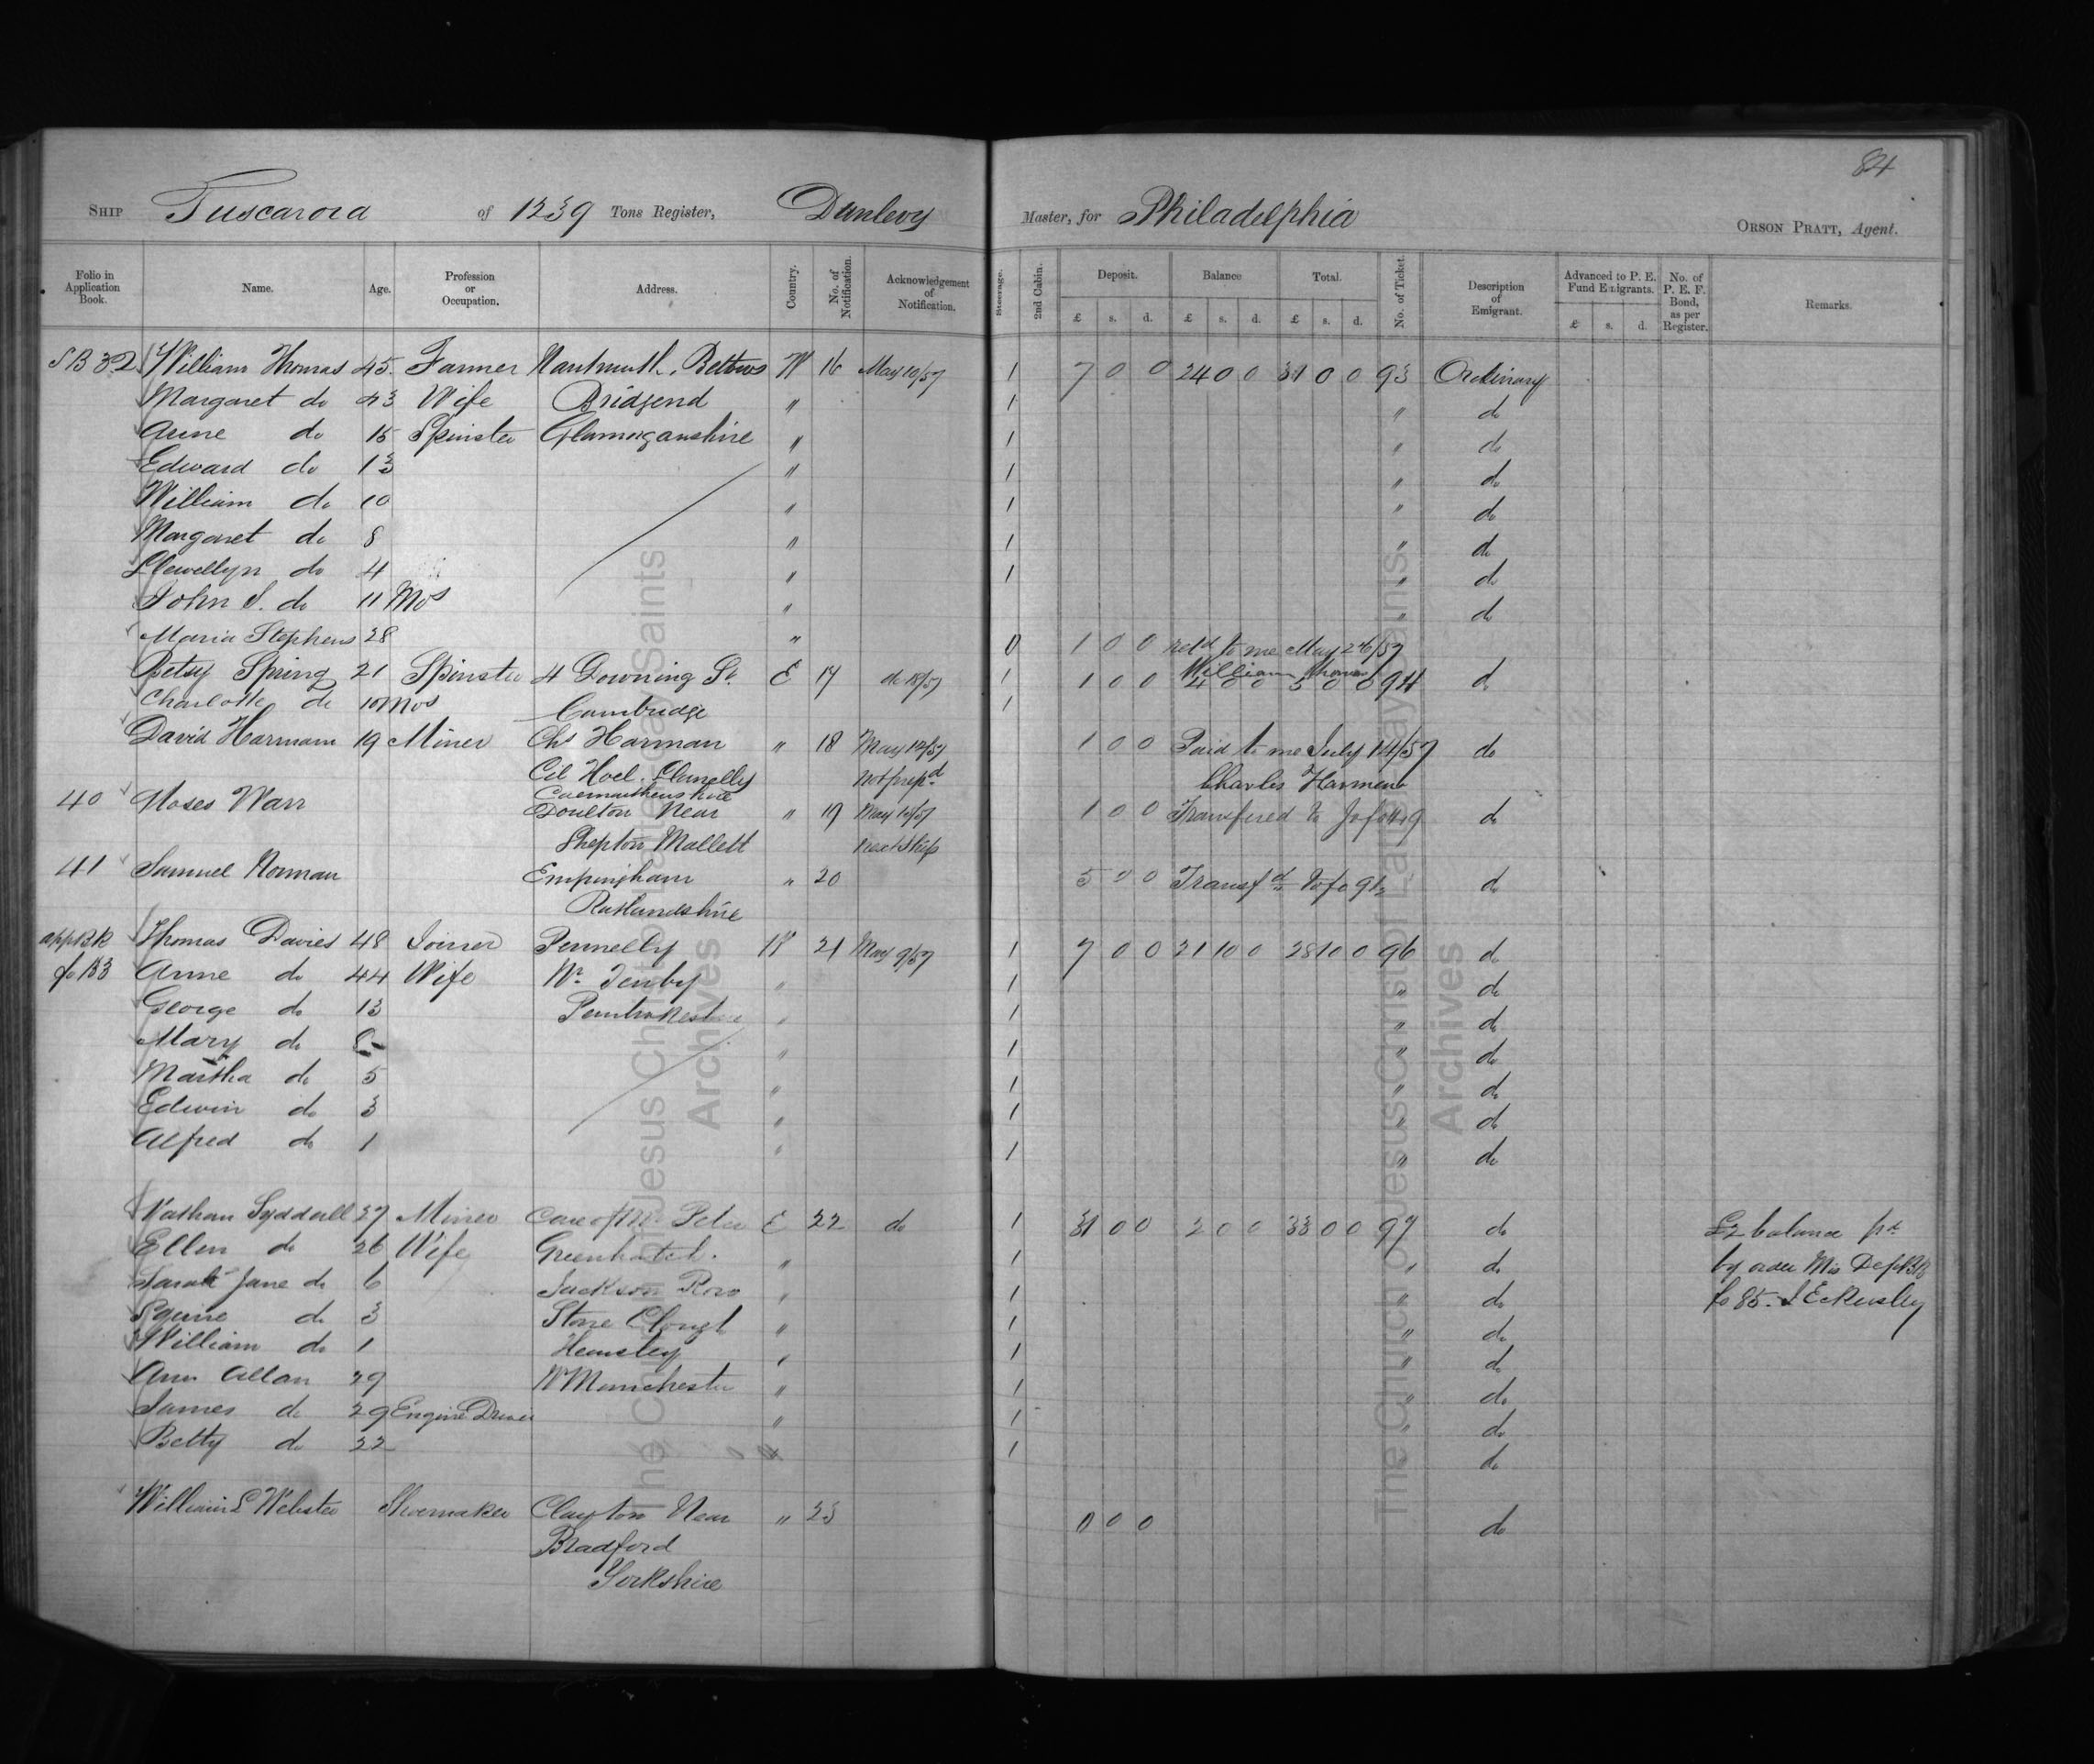 84
SHIP Tuscarora of 1239 Tons Register, Dunlevy Master, for Philadelphia ORSON PRATT, Agent.
Folio in Application Book. Name. Age. Profession or Occupation. Address. Country. No. of Notification. Acknowledgement of Notification. Steerage. 2nd Cabin. Deposit. Balance Total. No. of Ticket. Description of Emigrant. Advanced to P. E. Fund Emigrants. No. of P. E. F. Bond, as per Register. Remarks.
£ s. d. £ s. d. £ s. d. £ s. d.
SB 32 William Thomas 45 Farmer Bettws W 16 May 10/57 1 7 0 0 24 0 0 31 0 0 93 Ordinary
Margaret do 43 Wife Bridgend " 1 " do
Anne do 15 Spinster Glamorganshire " 1 " do
Edward do 13 " 1 " do
William do 10 " 1 " do
Margaret do 8 " 1 " do
Llewellyn do 4 " 1 " do
John S. do 11 Mos " " do
Maria Stephens 28 " 0 1 0 0 retd to me May 26/57
William Thomas
Betsy Spring 21 Spinster 4 Downing St. E 17 do 18/57 1 1 0 0 4 0 0 5 0 0 94 do
Charlotte do 10 Mos Cambridge 1
David Harmam 19 Miner Chs Harman " 18 May 12/57 1 0 0 Paid to me July 14/57 do
Cil Hoel. Llanelly not prepd Charles Harman
Caermarthenshire
40 Moses Warr Doulton Near " 19 May 10/57 1 0 0 Transfered to do
Shepton Mallett next Ship
41 Samuel Norman Empingham " 20 5 0 0 Transfd to fo 91 do
Rutlandshire
app BK Thomas Davies 48 Joiner Pennelly W 21 May 9/57 1 7 0 0 21 10 0 28 10 0 96 do
fo 133 Anne do 44 Wife Nr Tenby " 1 " do
George do 13 Pembrokeshire " 1 " do
Mary do 8 " 1 " do
Martha do 5 " 1 " do
Edwin do 3 " 1 " do
Alfred do 1 " 1 " do
Nathan Syddall 27 Miner Care of Mr Peter E 22 do 1 31 0 0 2 0 0 33 0 0 97 do £2 balance pd
Ellen do 26 Wife Greenhalch. " 1 " do by order Mis Dep BK
Sarah Jane do 6 Jackson Row " 1 " do fo 85. J Eckersley
Squire do 3 Stone Clough " 1 " do
William do 1 " 1 " do
Ann Allan 29 Nr Manchester " 1 " do
James do 29 Engine Driver " 1 " do
Betty do 22 1 do
William L Webster Shoemaker Clayton Near " 23 0 0 0 do
Bradford
Yorkshire
The Church of Jesus Christ of Latter-day Saints
Archives
The Church of Jesus Christ of Latter-day Saints
Archives